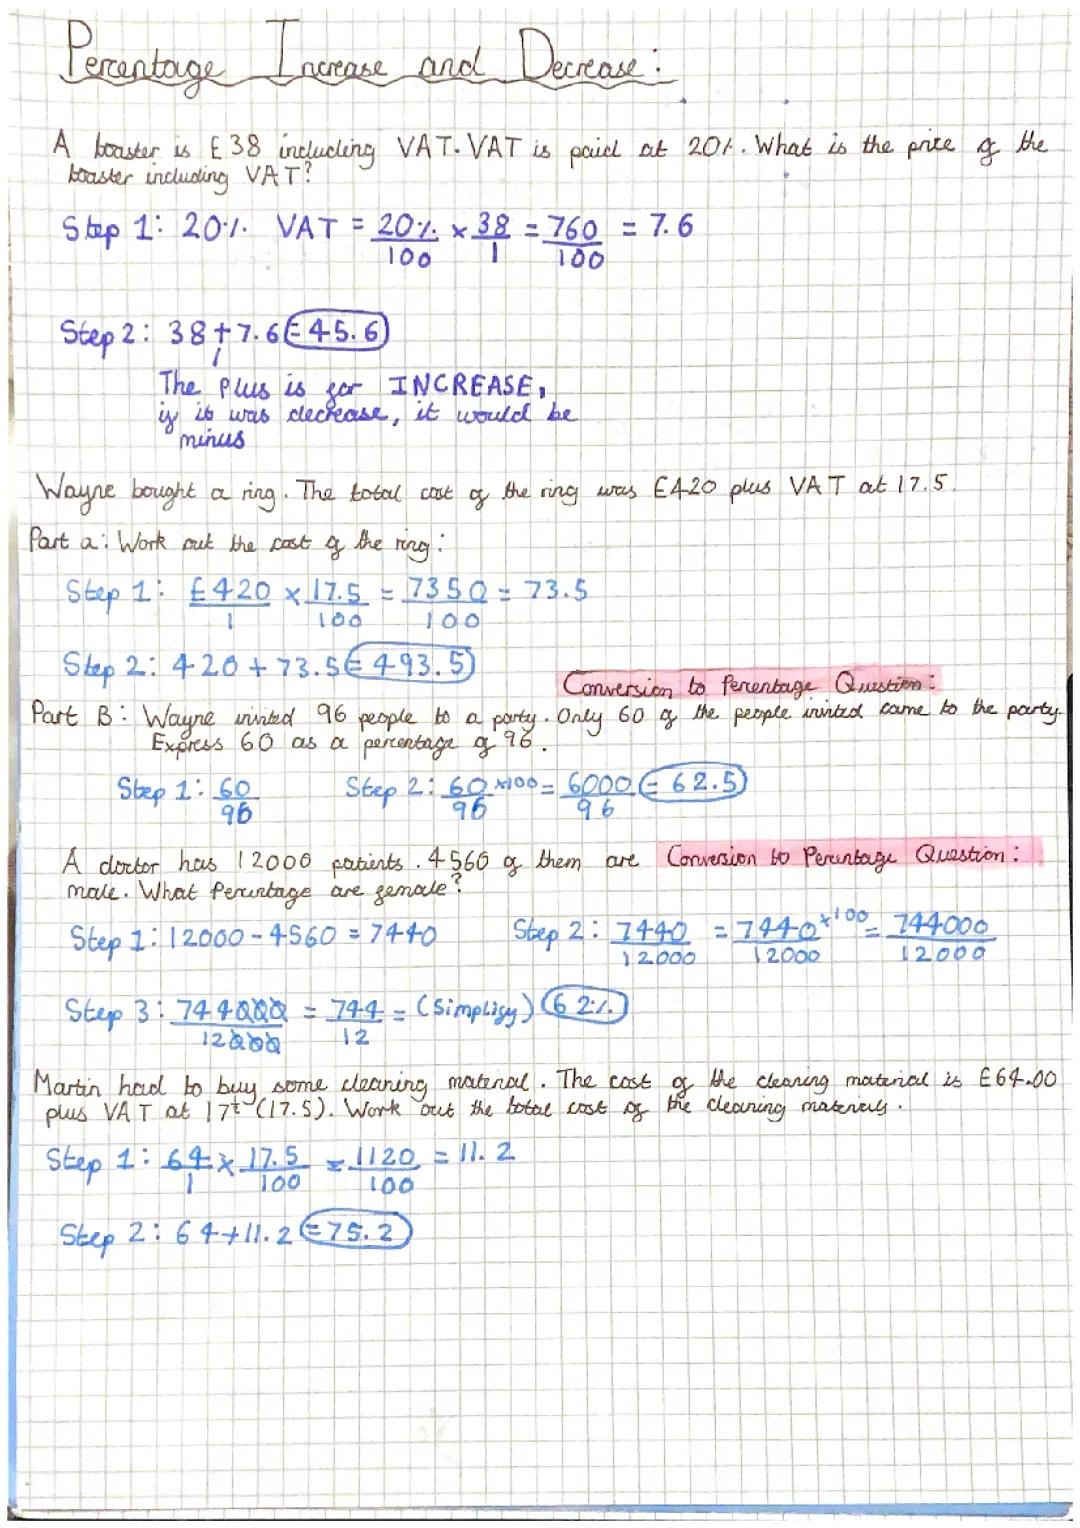 Percentage Increase and Decrease:
A toaster is £38 including VAT. VAT is paid at 20%. What is the price of the
toaster including VAT?
Step 1: 20% VAT = 20%/100 × 38/1 = 760/100 = 7.6
Step 2: 38+7.6 = 45.6
The plus is for INCREASE,
if it was decrease, it would be
minus
Wayne bought a ring. The total cost of the ring was £420 plus VAT at 17.5.
Part a: Work out the cost of the ring:
Step 1: £420/1 × 17.5/100 = 7350/100 = 73.5
Step 2: 420 + 73.5 = 493.5
Conversion to Percentage Question:
Part B: Wayne invited 96 people to a party. Only 60 of the people invited came to the party.
Express 60 as a percentage of 96.
Step 1: 60/96 Step 2: 60/96 ×100 = 6000/96 = 62.5
A doctor has 12000 patients. 4560 of them are Conversion to Percentage Question:
male. What Percentage are female?
Step 1: 12000 - 4560 = 7440 Step 2: 7440/12000 = 7440×100/12000 = 744000/12000
Step 3: 744000/12000 = 744/12 = (Simplify) 62%
Martin had to buy some cleaning material. The cost of the cleaning material is £64.00
plus VAT at 17½ (17.5). Work out the total cost of the cleaning materials.
Step 1: 64/1 × 17.5/100 = 1120/100 = 11.2
Step 2: 64+11.2 = 75.2